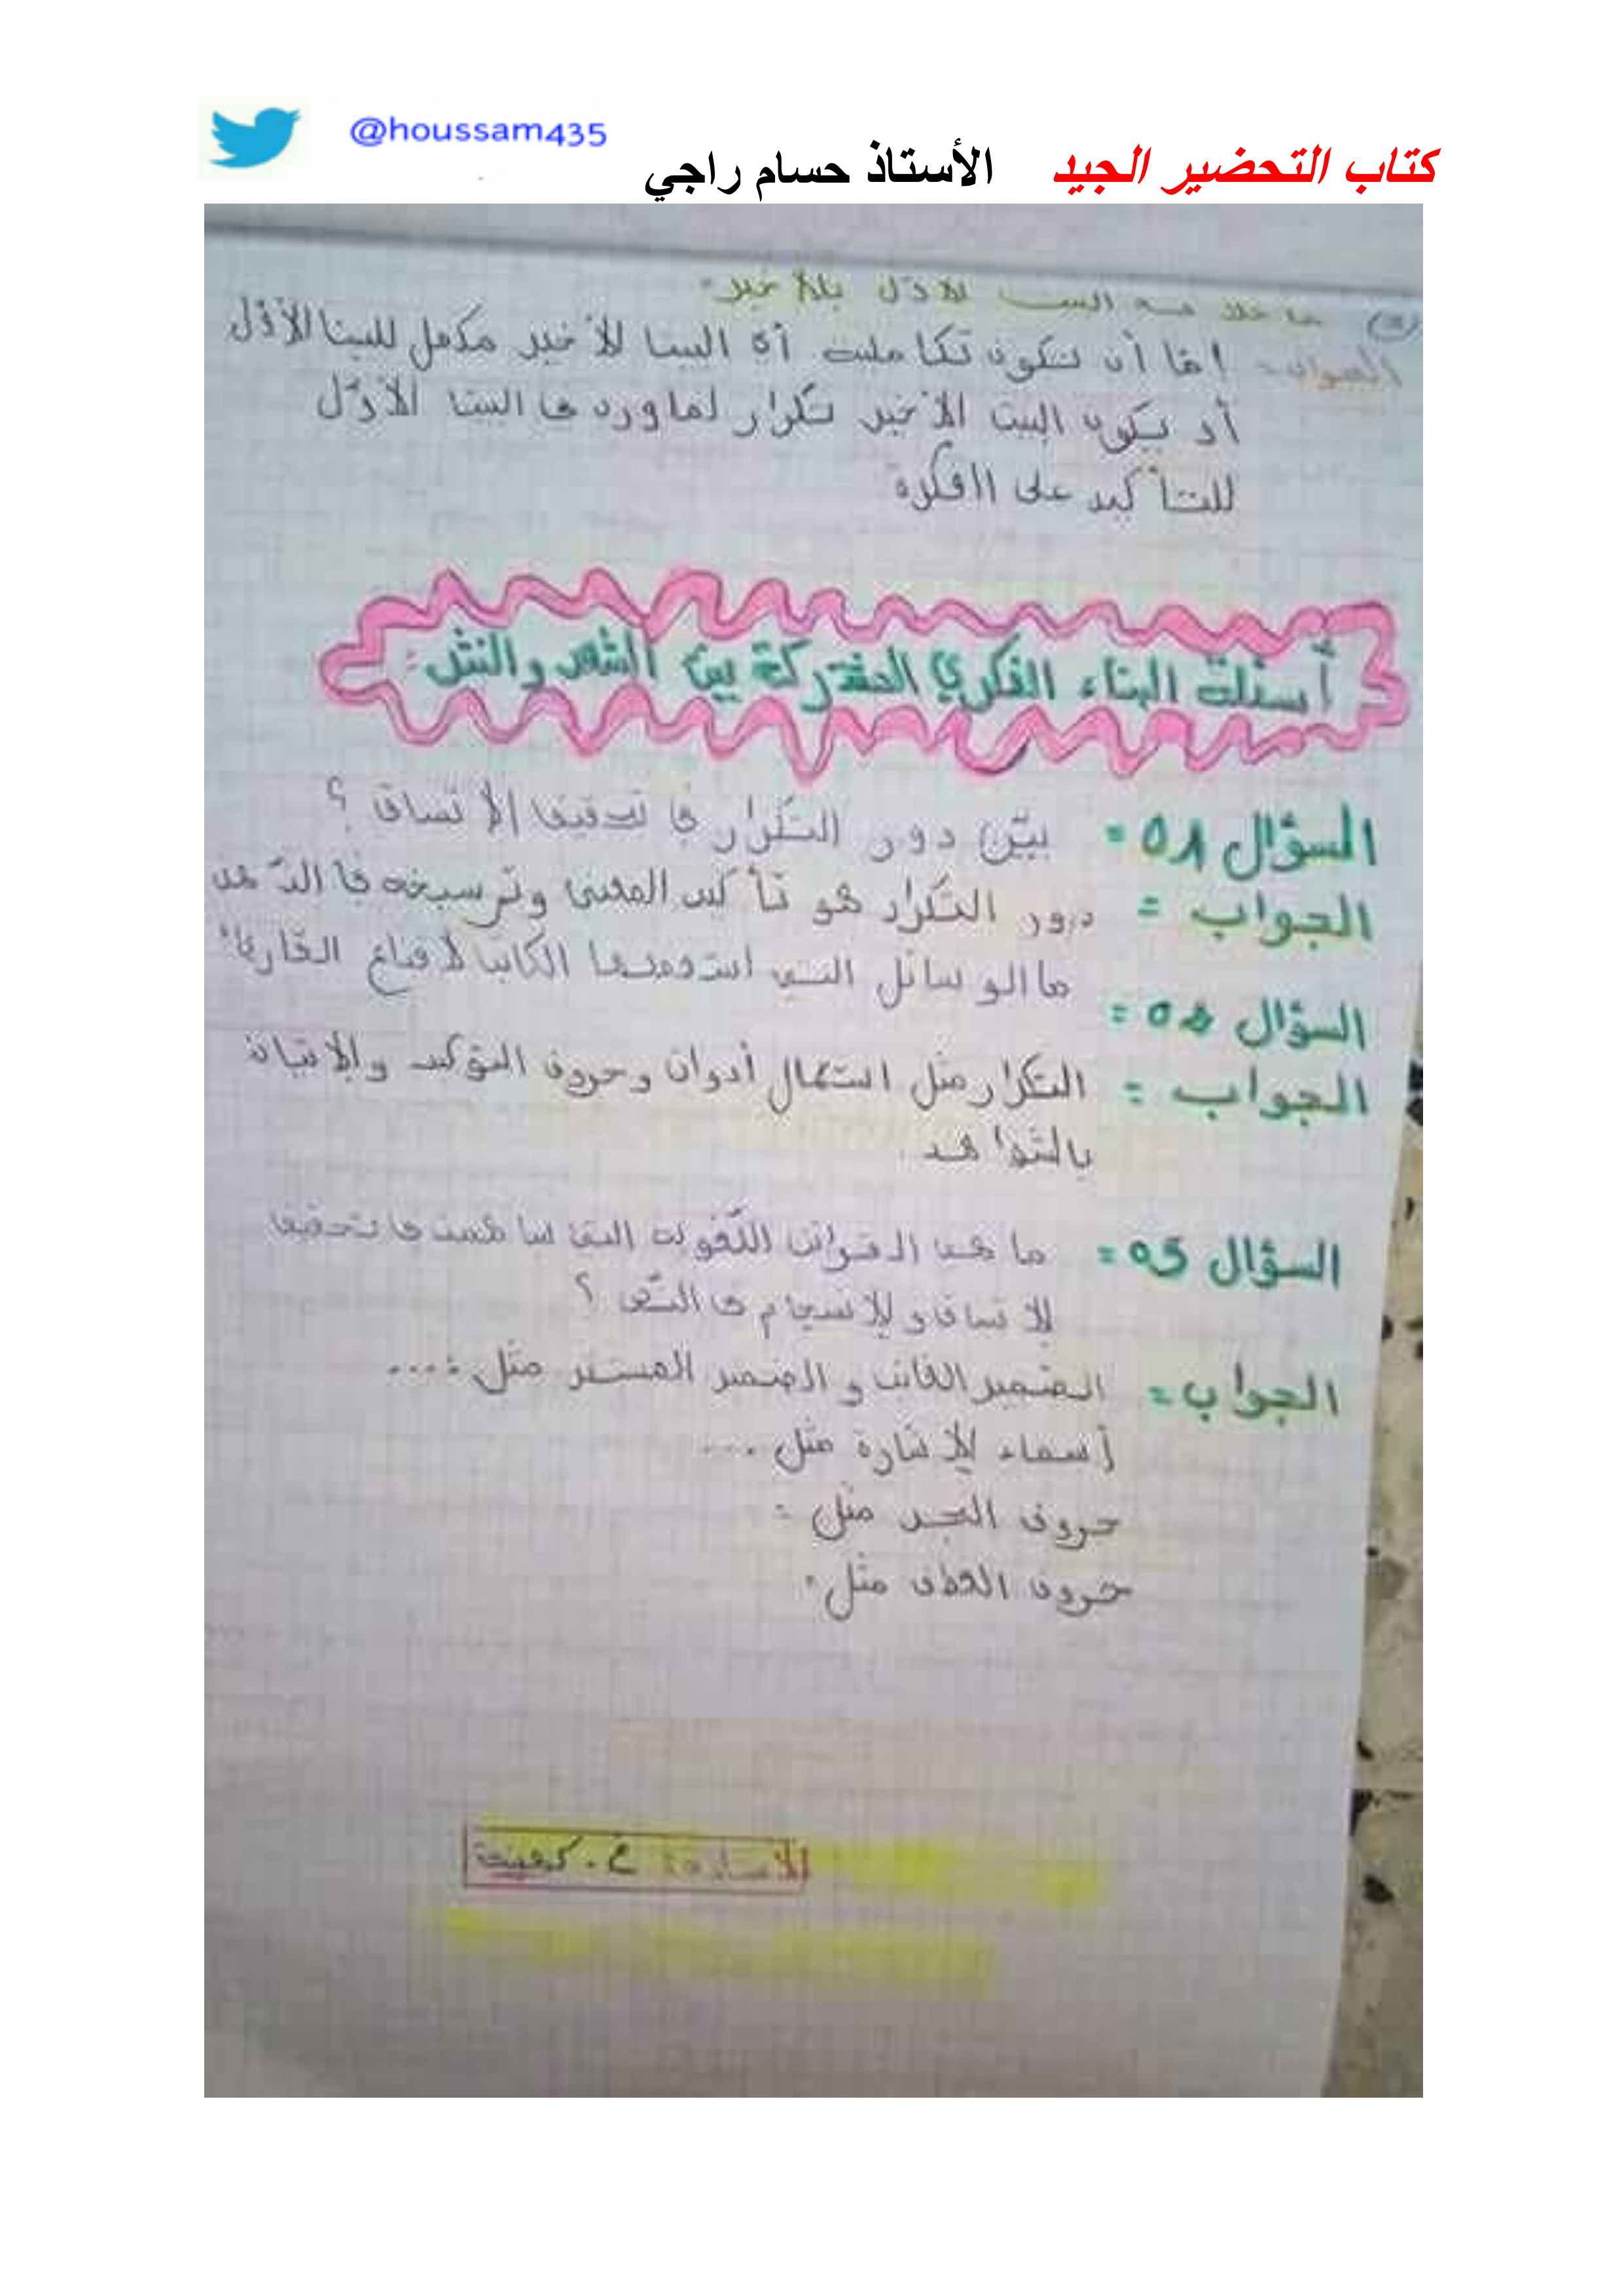 @houssam435
كتاب التحضير الجيد الأستاذ حسام راجي
(3) ما علاقة البيت الأوّل بالأخير
الجواب = إمّا أن تكون تكاملية أي البيت الأخير مكمل للبيت الأوّل
أو يكون البيت الأخير تكرار لما ورد في البيت الأوّل
للتأكيد على الفكرة
أسئلة البناء الفكري المشتركة بين الشعر والنثر:
السؤال 01 = بيّن دور التكرار في تحقيق الاتساق ؟
الجواب = دور التكرار هو تأكيد المعنى وترسيخه في الذّهن
السؤال 02 = ما الوسائل التي استخدمها الكاتب لإقناع القارئ
الجواب = التكرار مثل استعمال أدوات وحروف التوكيد والإتيان
بالشواهد .
السؤال 03 = ما هي القرائن اللّغوية التي ساهمت في تحقيق
الاتساق والانسجام في النّص ؟
الجواب = الضمير الغائب والضمير المستتر مثل : ...
أسماء الإشارة مثل ...
حروف الجر مثل :
حروف العطف مثل :
الأستاذة خ .